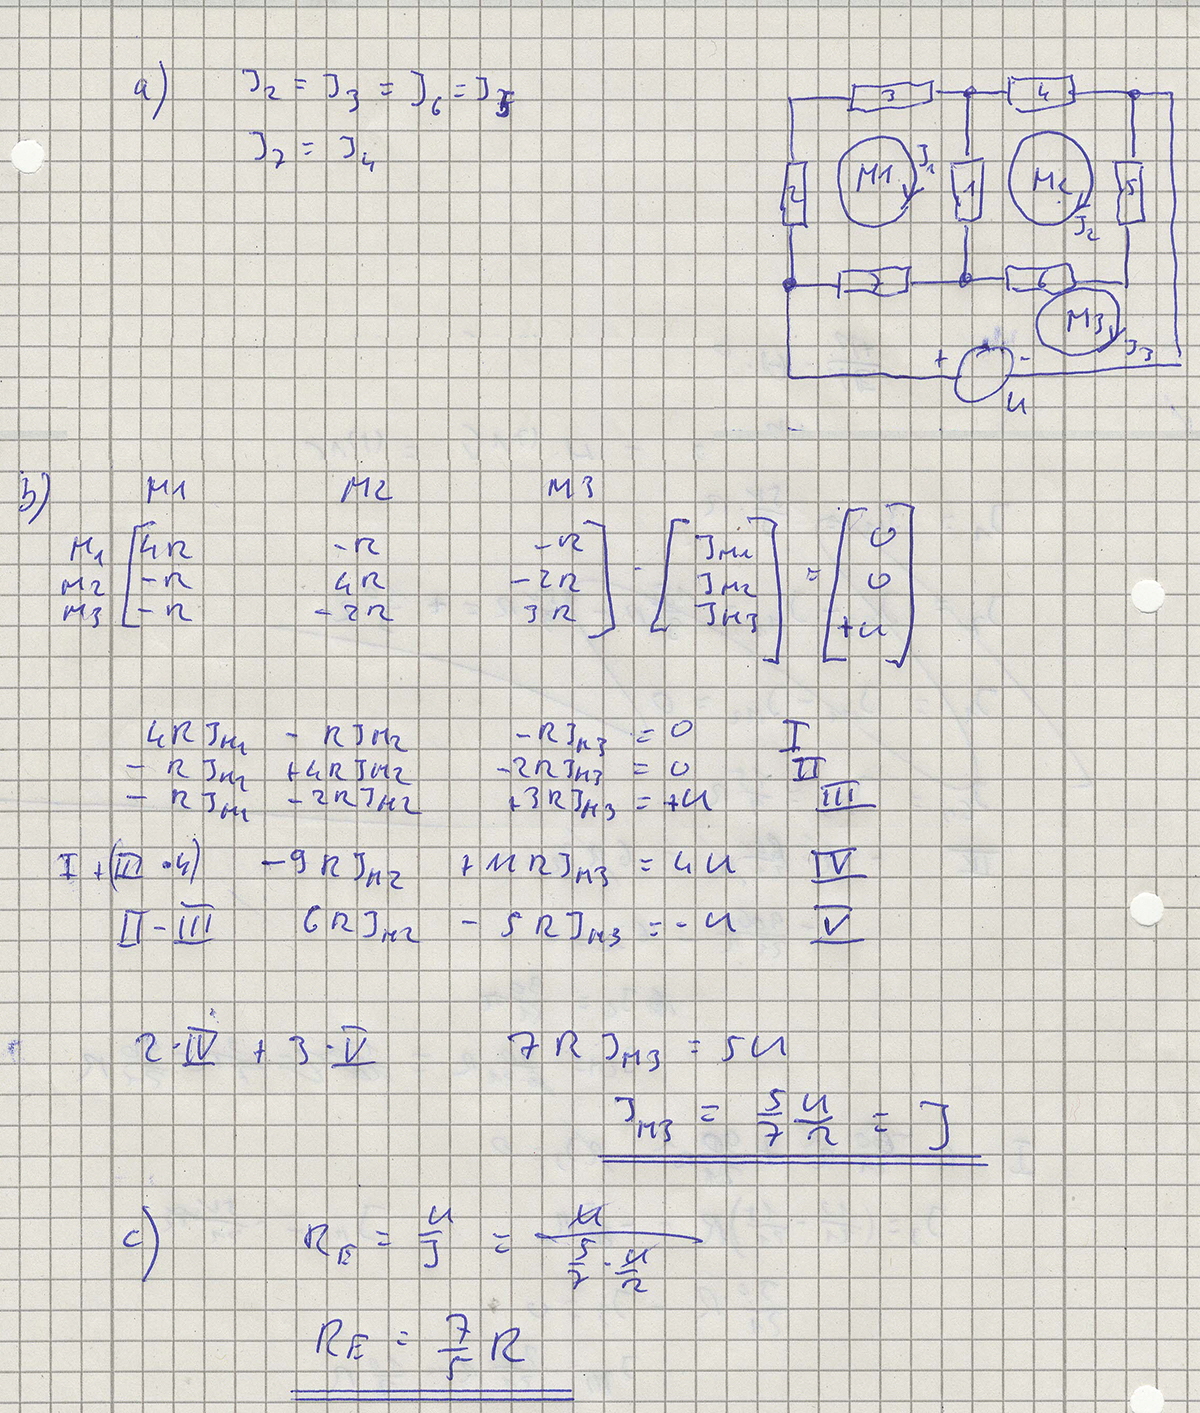 a) J₂ = J₃ = J₆ = J₅
J₇ = J₄
3 4
2 M1 J₁ 1 M2 J₂ 5
7 6
M3 J₃
+ -
U
b) M1 M2 M3
M1 [ 4R -R -R ] · [ J_M1 ] = [ 0 ]
M2 [ -R 4R -2R ] [ J_M2 ] [ 0 ]
M3 [ -R -2R 3R ] [ J_M3 ] [ +U ]
4R J_M1 - R J_M2 - R J_M3 = 0 I
- R J_M2 + 4R J_M2 - 2R J_M3 = 0 II
- R J_M1 - 2R J_M2 + 3R J_M3 = +U III
I + (III · 4) - 9R J_M2 + 11R J_M3 = 4U IV
II - III 6R J_M2 - 5R J_M3 = -U V
2 · IV + 3 · V 7R J_M3 = 5U
J_M3 = 5/7 U/R = J
c) R_E = U/J = U / (5/7 · U/R)
R_E = 7/5 R